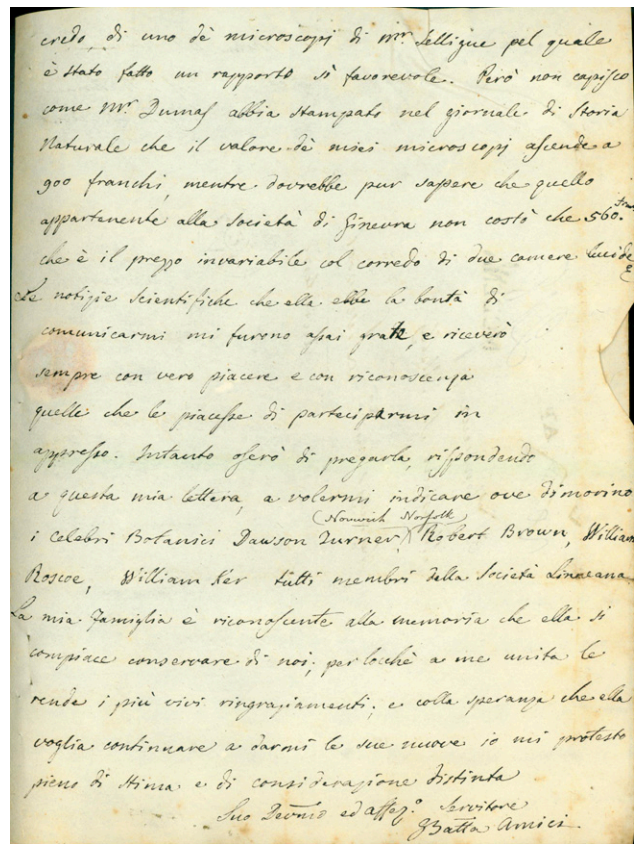 credo, di uno dè microscopj di Mr. Selligue pel quale
è stato fatto un rapporto sì favorevole. Però non capisco
come Mr. Dumas abbia stampato nel giornale di Storia
Naturale che il valore dè miei microscopj ascende a
900 franchi, mentre dovrebbe pur sapere che quello
appartenente alla Società di Ginevra non costò che 560.
che è il prezzo invariabile col corredo di due camere lucide
Le notizie scientifiche che ella ebbe la bontà di
comunicarmi mi furono assai grate, e riceverò
sempre con vero piacere e con riconoscenza
quelle che le piacesse di parteciparmi in
appresso. Intanto oserò di pregarla, rispondendo
a questa mia lettera, a volermi indicare ove dimorino
(Norwich Norfolk)
i celebri Botanici Dawson Turner, Robert Brown, William
Roscoe, William Ker tutti membri della Società Lineana
La mia famiglia è riconoscente alla memoria che ella si
compiace conservare di noi; perlocchè a me unita le
rende i più vivi ringraziamenti; e colla speranza che ella
voglia continuare a darmi le sue nuove io mi protesto
pieno di stima e di considerazione distinta
Suo Devmo ed affezo. Servitore
GBatta Amici.